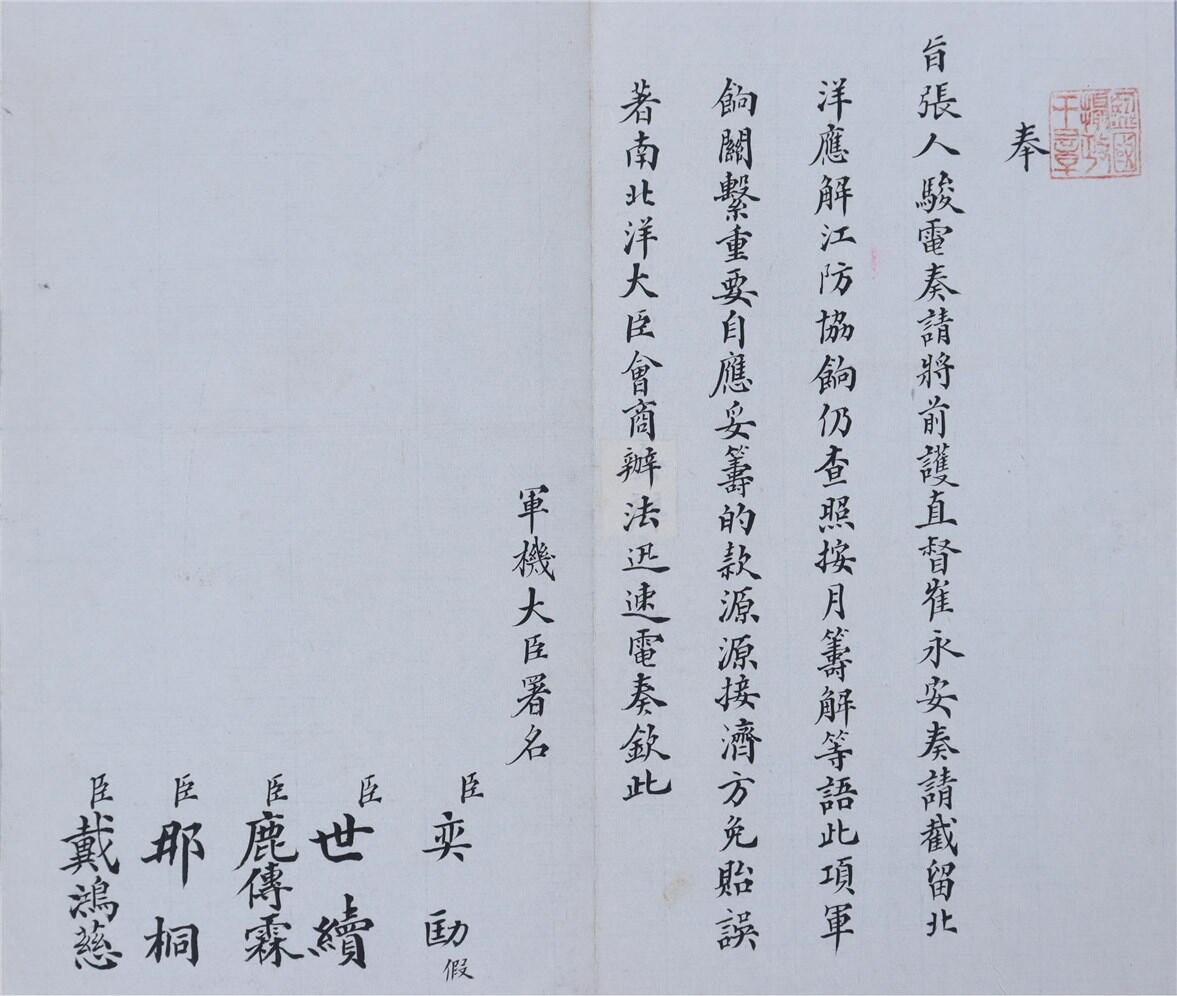 監國
攝政
王章
奉
旨張人駿電奏請將前護直督崔永安奏請截留北
洋應解江防協餉仍查照按月籌解等語此項軍
餉關繫重要自應妥籌的款源源接濟方免貽誤
著南北洋大臣會商辦法迅速電奏欽此
軍機大臣署名
臣奕劻假
臣世續
臣鹿傳霖
臣那桐
臣戴鴻慈